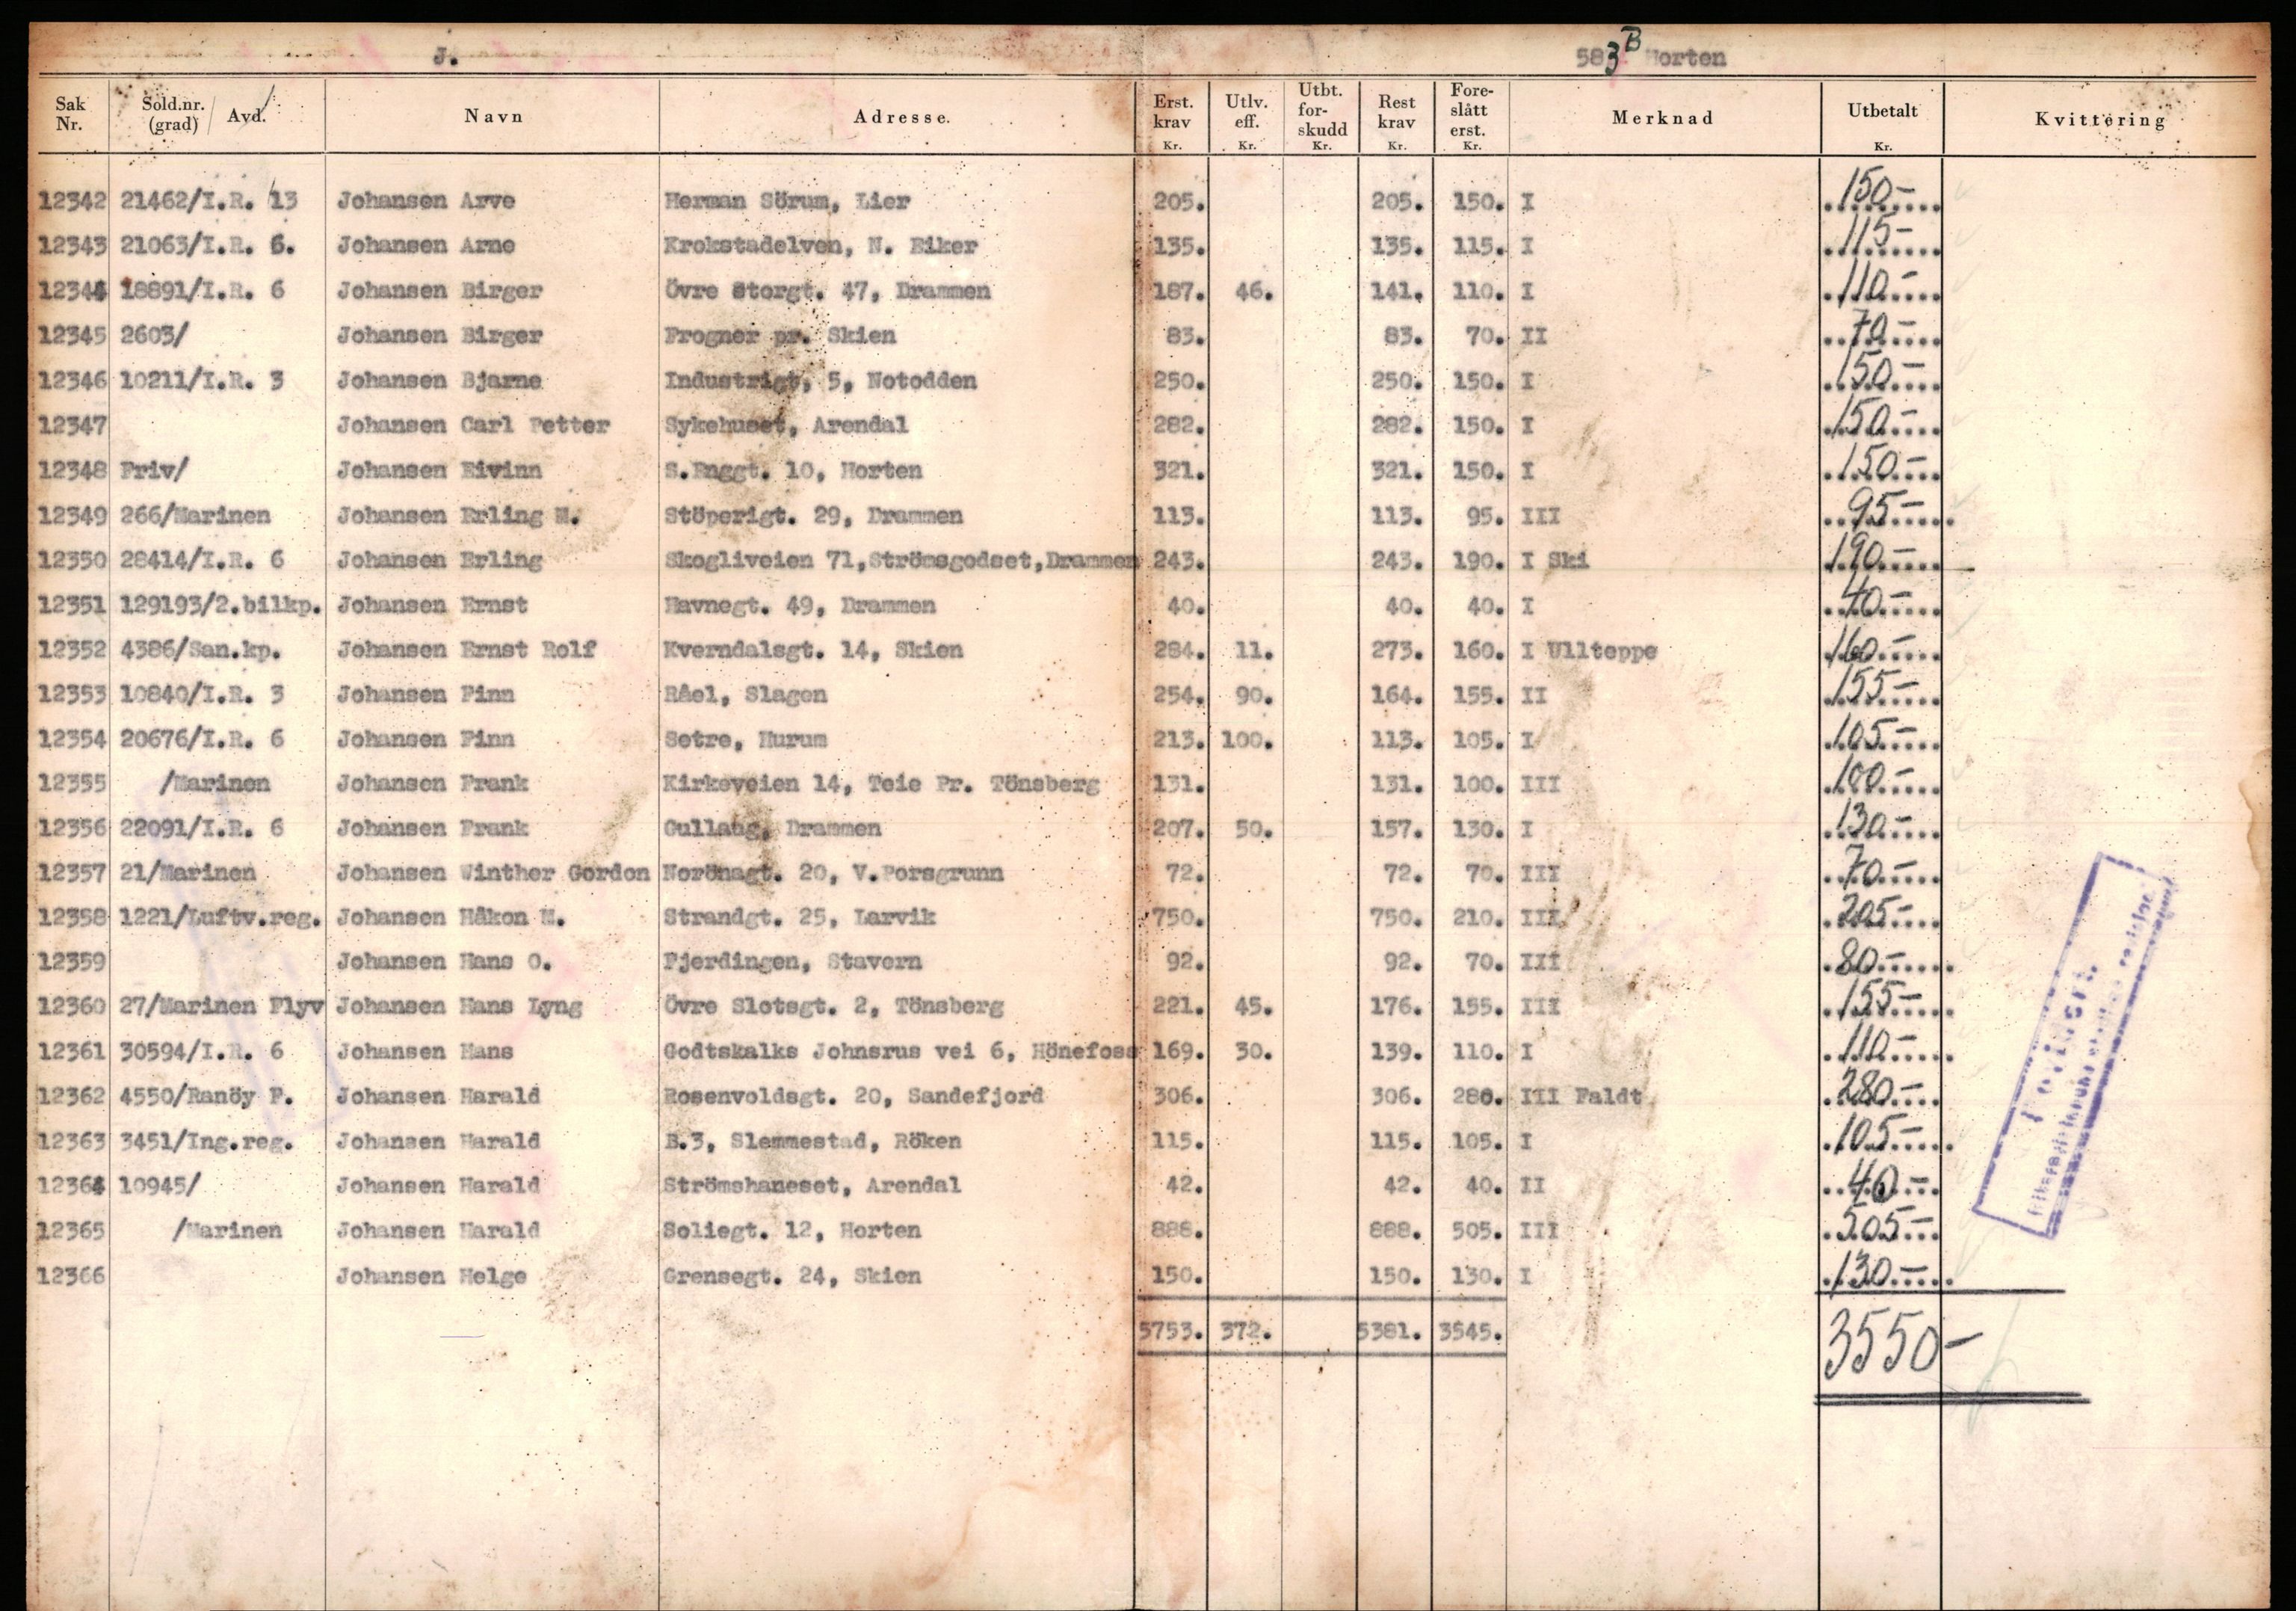 J. 583 B Horten
Sak Nr. Sold.nr. (grad) / Avd. Navn Adresse. Erst. krav Kr. Utlv. eff. Kr. Utbt. for- skudd Kr. Rest krav Kr. Fore- slått erst. Kr. Merknad Utbetalt Kr. Kvittering
12342 21462/I.R. 13 Johansen Arve Herman Sörum, Lier 205. 205. 150. I 150-
12343 21063/I.R. 6. Johansen Arne Krokstadelven, N. Eiker 135. 135. 115. I 115-
12344 18891/I.R. 6 Johansen Birger Övre Storgt. 47, Drammen 187. 46. 141. 110. I 110-
12345 2603/ Johansen Birger Frogner pr. Skien 83. 83. 70. II 70-
12346 10211/I.R. 3 Johansen Bjarne Industrigt, 5, Notodden 250. 250. 150. I 150-
12347 Johansen Carl Petter Sykehuset, Arendal 282. 282. 150. I 150-
12348 Friv/ Johansen Eivinn S.Enggt. 10, Horten 321. 321. 150. I 150-
12349 266/Marinen Johansen Erling M. Stöperigt. 29, Drammen 113. 113. 95. III 95-
12350 28414/I.R. 6 Johansen Erling Skogliveien 71,Strömsgodset,Drammen 243. 243. 190. I Ski 190-
12351 129193/2.bilkp. Johansen Ernst Havnegt. 49, Drammen 40. 40. 40. I 40-
12352 4386/San.kp. Johansen Ernst Rolf Kverndalsgt. 14, Skien 284. 11. 273. 160. I Ullteppe 160-
12353 10840/I.R. 3 Johansen Finn Råel, Slagen 254. 90. 164. 155. II 155-
12354 20676/I.R. 6 Johansen Finn Setre, Hurum 213. 100. 113. 105. I 105-
12355 /Marinen Johansen Frank Kirkeveien 14, Teie Pr. Tönsberg 131. 131. 100. III 100-
12356 22091/I.R. 6 Johansen Frank Gullaug, Drammen 207. 50. 157. 130. I 130-
12357 21/Marinen Johansen Winther Gordon Norönagt. 20, V.Porsgrunn 72. 72. 70. III 70-
12358 1221/Luftv.reg. Johansen Håkon M. Strandgt. 25, Larvik 750. 750. 210. III 205-
12359 Johansen Hans O. Fjerdingen, Stavern 92. 92. 70. III 80-
12360 27/Marinen Flyv Johansen Hans Lyng Övre Slotsgt. 2, Tönsberg 221. 45. 176. 155. III 155-
12361 30594/I.R. 6 Johansen Hans Godtskalks Johnsrus vei 6, Hönefoss 169. 30. 139. 110. I 110-
12362 4550/Ranöy F. Johansen Harald Rosenvoldsgt. 20, Sandefjord 306. 306. 280. III Faldt 280-
12363 3451/Ing.reg. Johansen Harald B.3, Slemmestad, Röken 115. 115. 105. I 105-
12364 10945/ Johansen Harald Strömshaneset, Arendal 42. 42. 40. II 40-
12365 /Marinen Johansen Harald Soliegt. 12, Horten 888. 888. 505. III 505-
12366 Johansen Helge Grensegt. 24, Skien 150. 150. 130. I 130-
5753. 372. 5381. 3545. 3550-